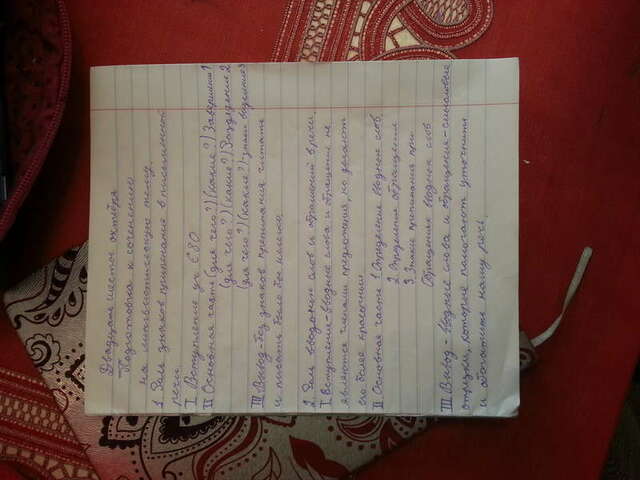 Двадцать шестое октября
Подготовка к сочинению
на лингвистическую тему.
1. Роль знаков препинания в письменной
речи.
I Вступление у. с 80
II Основная часть (для чего?) (какие?) Завершения 1
(для чего?) (какие?) Разделения 2
(для чего?) (какие?) знаки выделит 3
III Вывод - без знаков препинания читать
и писать было бы нелегко.
2. Роль вводных слов и обращений в речи
I Вступление - вводные слова и обращения не
являются членами предложения, но делают
его более красочным
II Основная часть 1 Определение вводных слов
2. Определение обращения
3 Знаки препинания при
Обращениях вводных слов
III Вывод - вводные слова и обращения - смысловые
отрезки, которые помогают уточнить
и обогатить нашу речь.